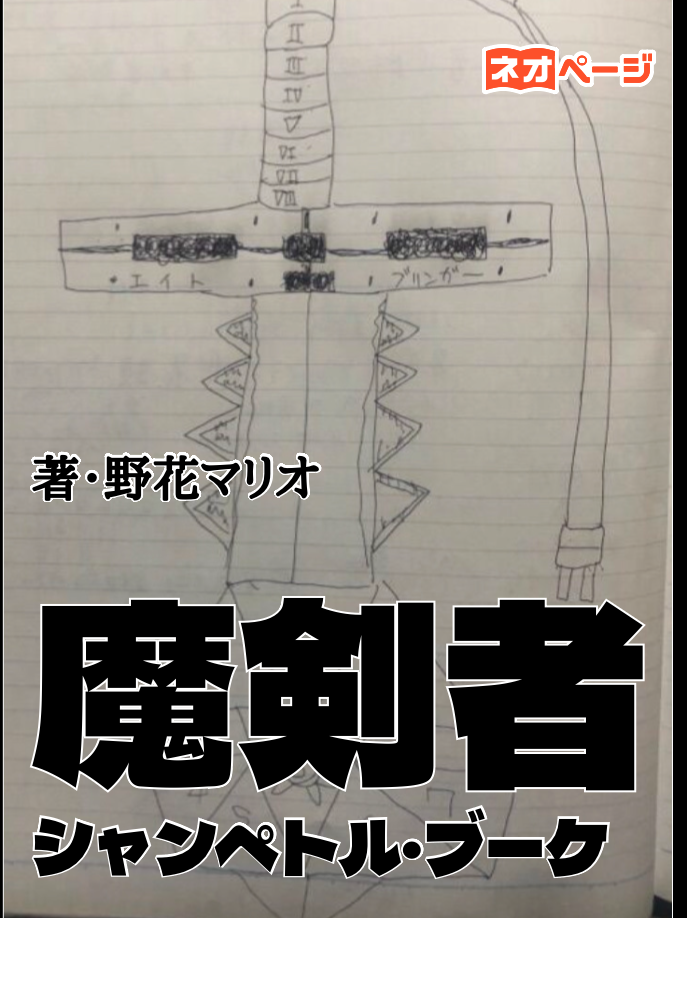 I
II
III
IV
V
VI
VII
VIII
ネオページ
エイト ブリンガー
著・野花マリオ
魔剣者
シャンペトル・ブーケ